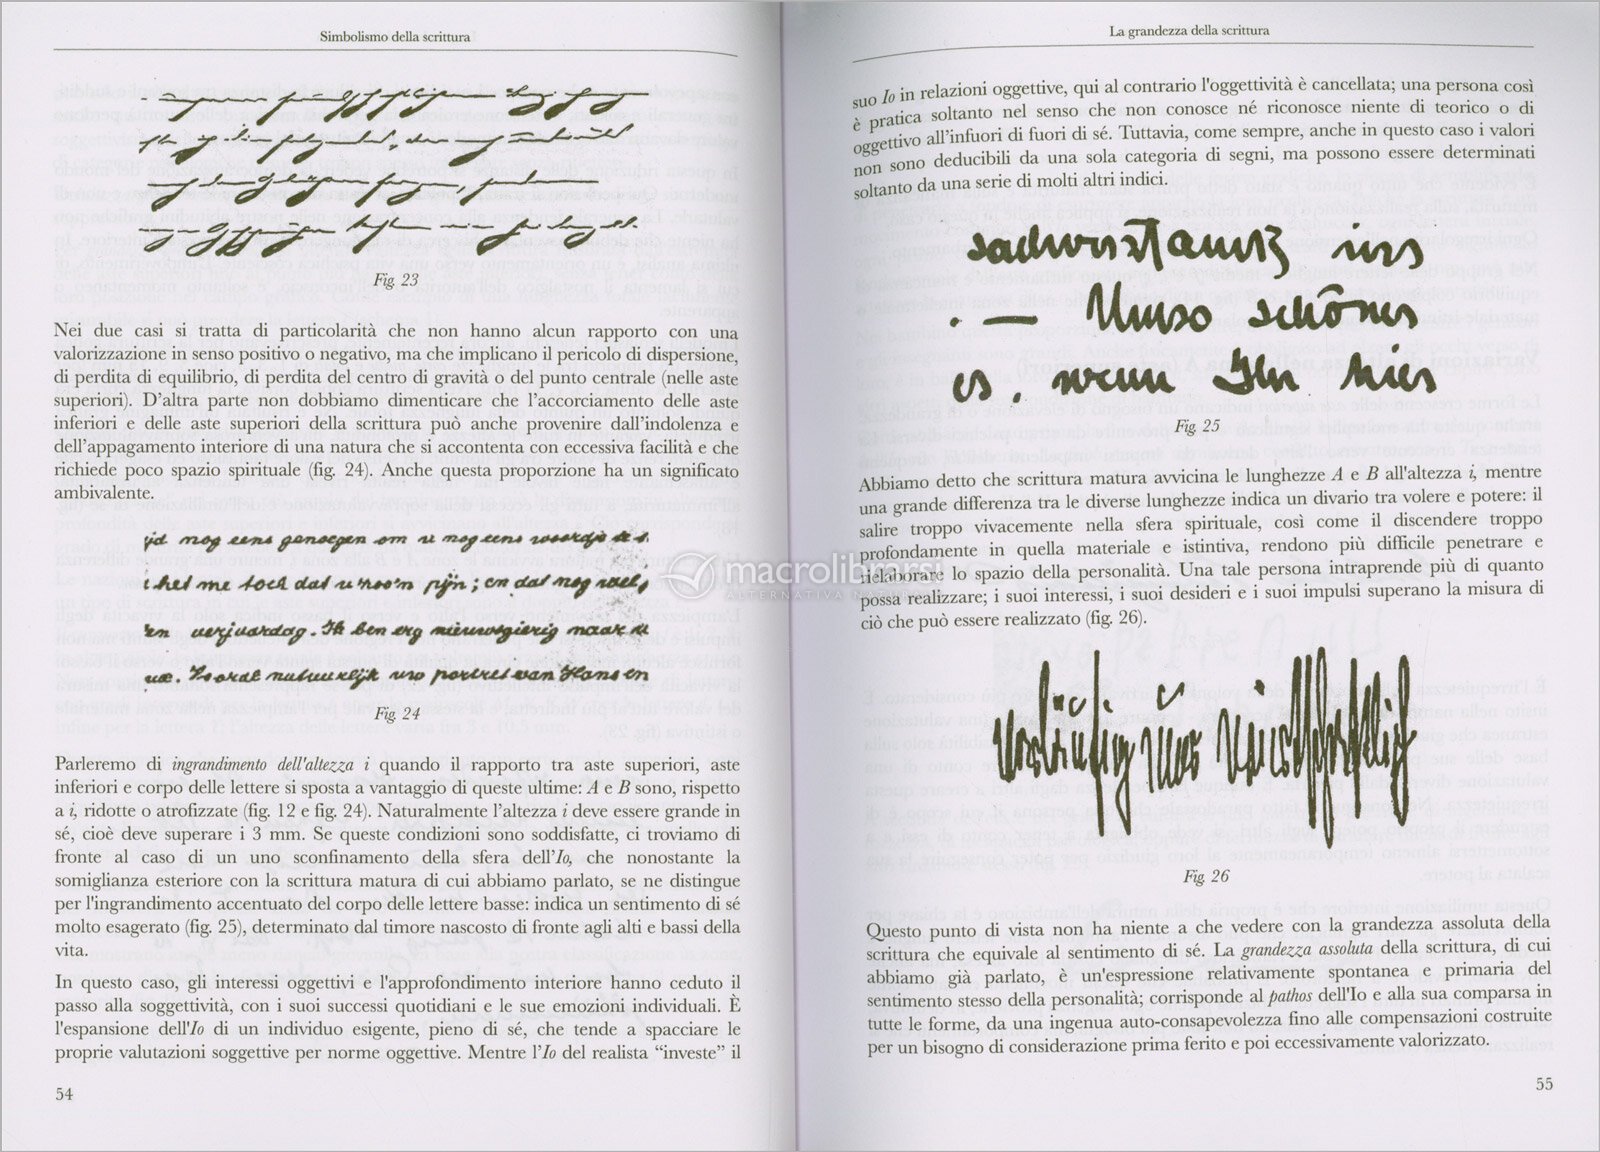 Simbolismo della scrittura
Fig. 23
Nei due casi si tratta di particolarità che non hanno alcun rapporto con una
valorizzazione in senso positivo o negativo, ma che implicano il pericolo di dispersione,
di perdita di equilibrio, di perdita del centro di gravità o del punto centrale (nelle aste
superiori). D'altra parte non dobbiamo dimenticare che l'accorciamento delle aste
inferiori e delle aste superiori della scrittura può anche provenire dall'indolenza e
dell'appagamento interiore di una natura che si accontenta con eccessiva facilità e che
richiede poco spazio spirituale (fig. 24). Anche questa proporzione ha un significato
ambivalente.
nog eens genoegen om u nog eens woordje
i het me toch dat u zoo'n pijn; en dat nog wel,
en verjaardag. Ik ben erg nieuwsgierig naar
Vooral natuurlijk uw portret van Hans en
Fig. 24
Parleremo di ingrandimento dell'altezza i quando il rapporto tra aste superiori, aste
inferiori e corpo delle lettere si sposta a vantaggio di queste ultime: A e B sono, rispetto
a i, ridotte o atrofizzate (fig. 12 e fig. 24). Naturalmente l'altezza i deve essere grande in
sé, cioè deve superare i 3 mm. Se queste condizioni sono soddisfatte, ci troviamo di
fronte al caso di un uno sconfinamento della sfera dell'Io, che nonostante la
somiglianza esteriore con la scrittura matura di cui abbiamo parlato, se ne distingue
per l'ingrandimento accentuato del corpo delle lettere basse: indica un sentimento di sé
molto esagerato (fig. 25), determinato dal timore nascosto di fronte agli alti e bassi della
vita.
In questo caso, gli interessi oggettivi e l'approfondimento interiore hanno ceduto il
passo alla soggettività, con i suoi successi quotidiani e le sue emozioni individuali. È
l'espansione dell'Io di un individuo esigente, pieno di sé, che tende a spacciare le
proprie valutazioni soggettive per norme oggettive. Mentre l'Io del realista “investe” il
54
La grandezza della scrittura
suo Io in relazioni oggettive, qui al contrario l'oggettività è cancellata; una persona così
è pratica soltanto nel senso che non conosce né riconosce niente di teorico o di
oggettivo all'infuori di fuori di sé. Tuttavia, come sempre, anche in questo caso i valori
non sono deducibili da una sola categoria di segni, ma possono essere determinati
soltanto da una serie di molti altri indici.
. — Umso schönes
es. wenn Ihn hies
Fig. 25
Abbiamo detto che scrittura matura avvicina le lunghezze A e B all'altezza i, mentre
una grande differenza tra le diverse lunghezze indica un divario tra volere e potere: il
salire troppo vivacemente nella sfera spirituale, così come il discendere troppo
profondamente in quella materiale e istintiva, rendono più difficile penetrare e
rielaborare lo spazio della personalità. Una tale persona intraprende più di quanto
possa realizzare; i suoi interessi, i suoi desideri e i suoi impulsi superano la misura di
ciò che può essere realizzato (fig. 26).
Fig. 26
Questo punto di vista non ha niente a che vedere con la grandezza assoluta della
scrittura che equivale al sentimento di sé. La grandezza assoluta della scrittura, di cui
abbiamo già parlato, è un'espressione relativamente spontanea e primaria del
sentimento stesso della personalità; corrisponde al pathos dell'Io e alla sua comparsa in
tutte le forme, da una ingenua auto-consapevolezza fino alle compensazioni costruite
per un bisogno di considerazione prima ferito e poi eccessivamente valorizzato.
55
macrolibrarsi